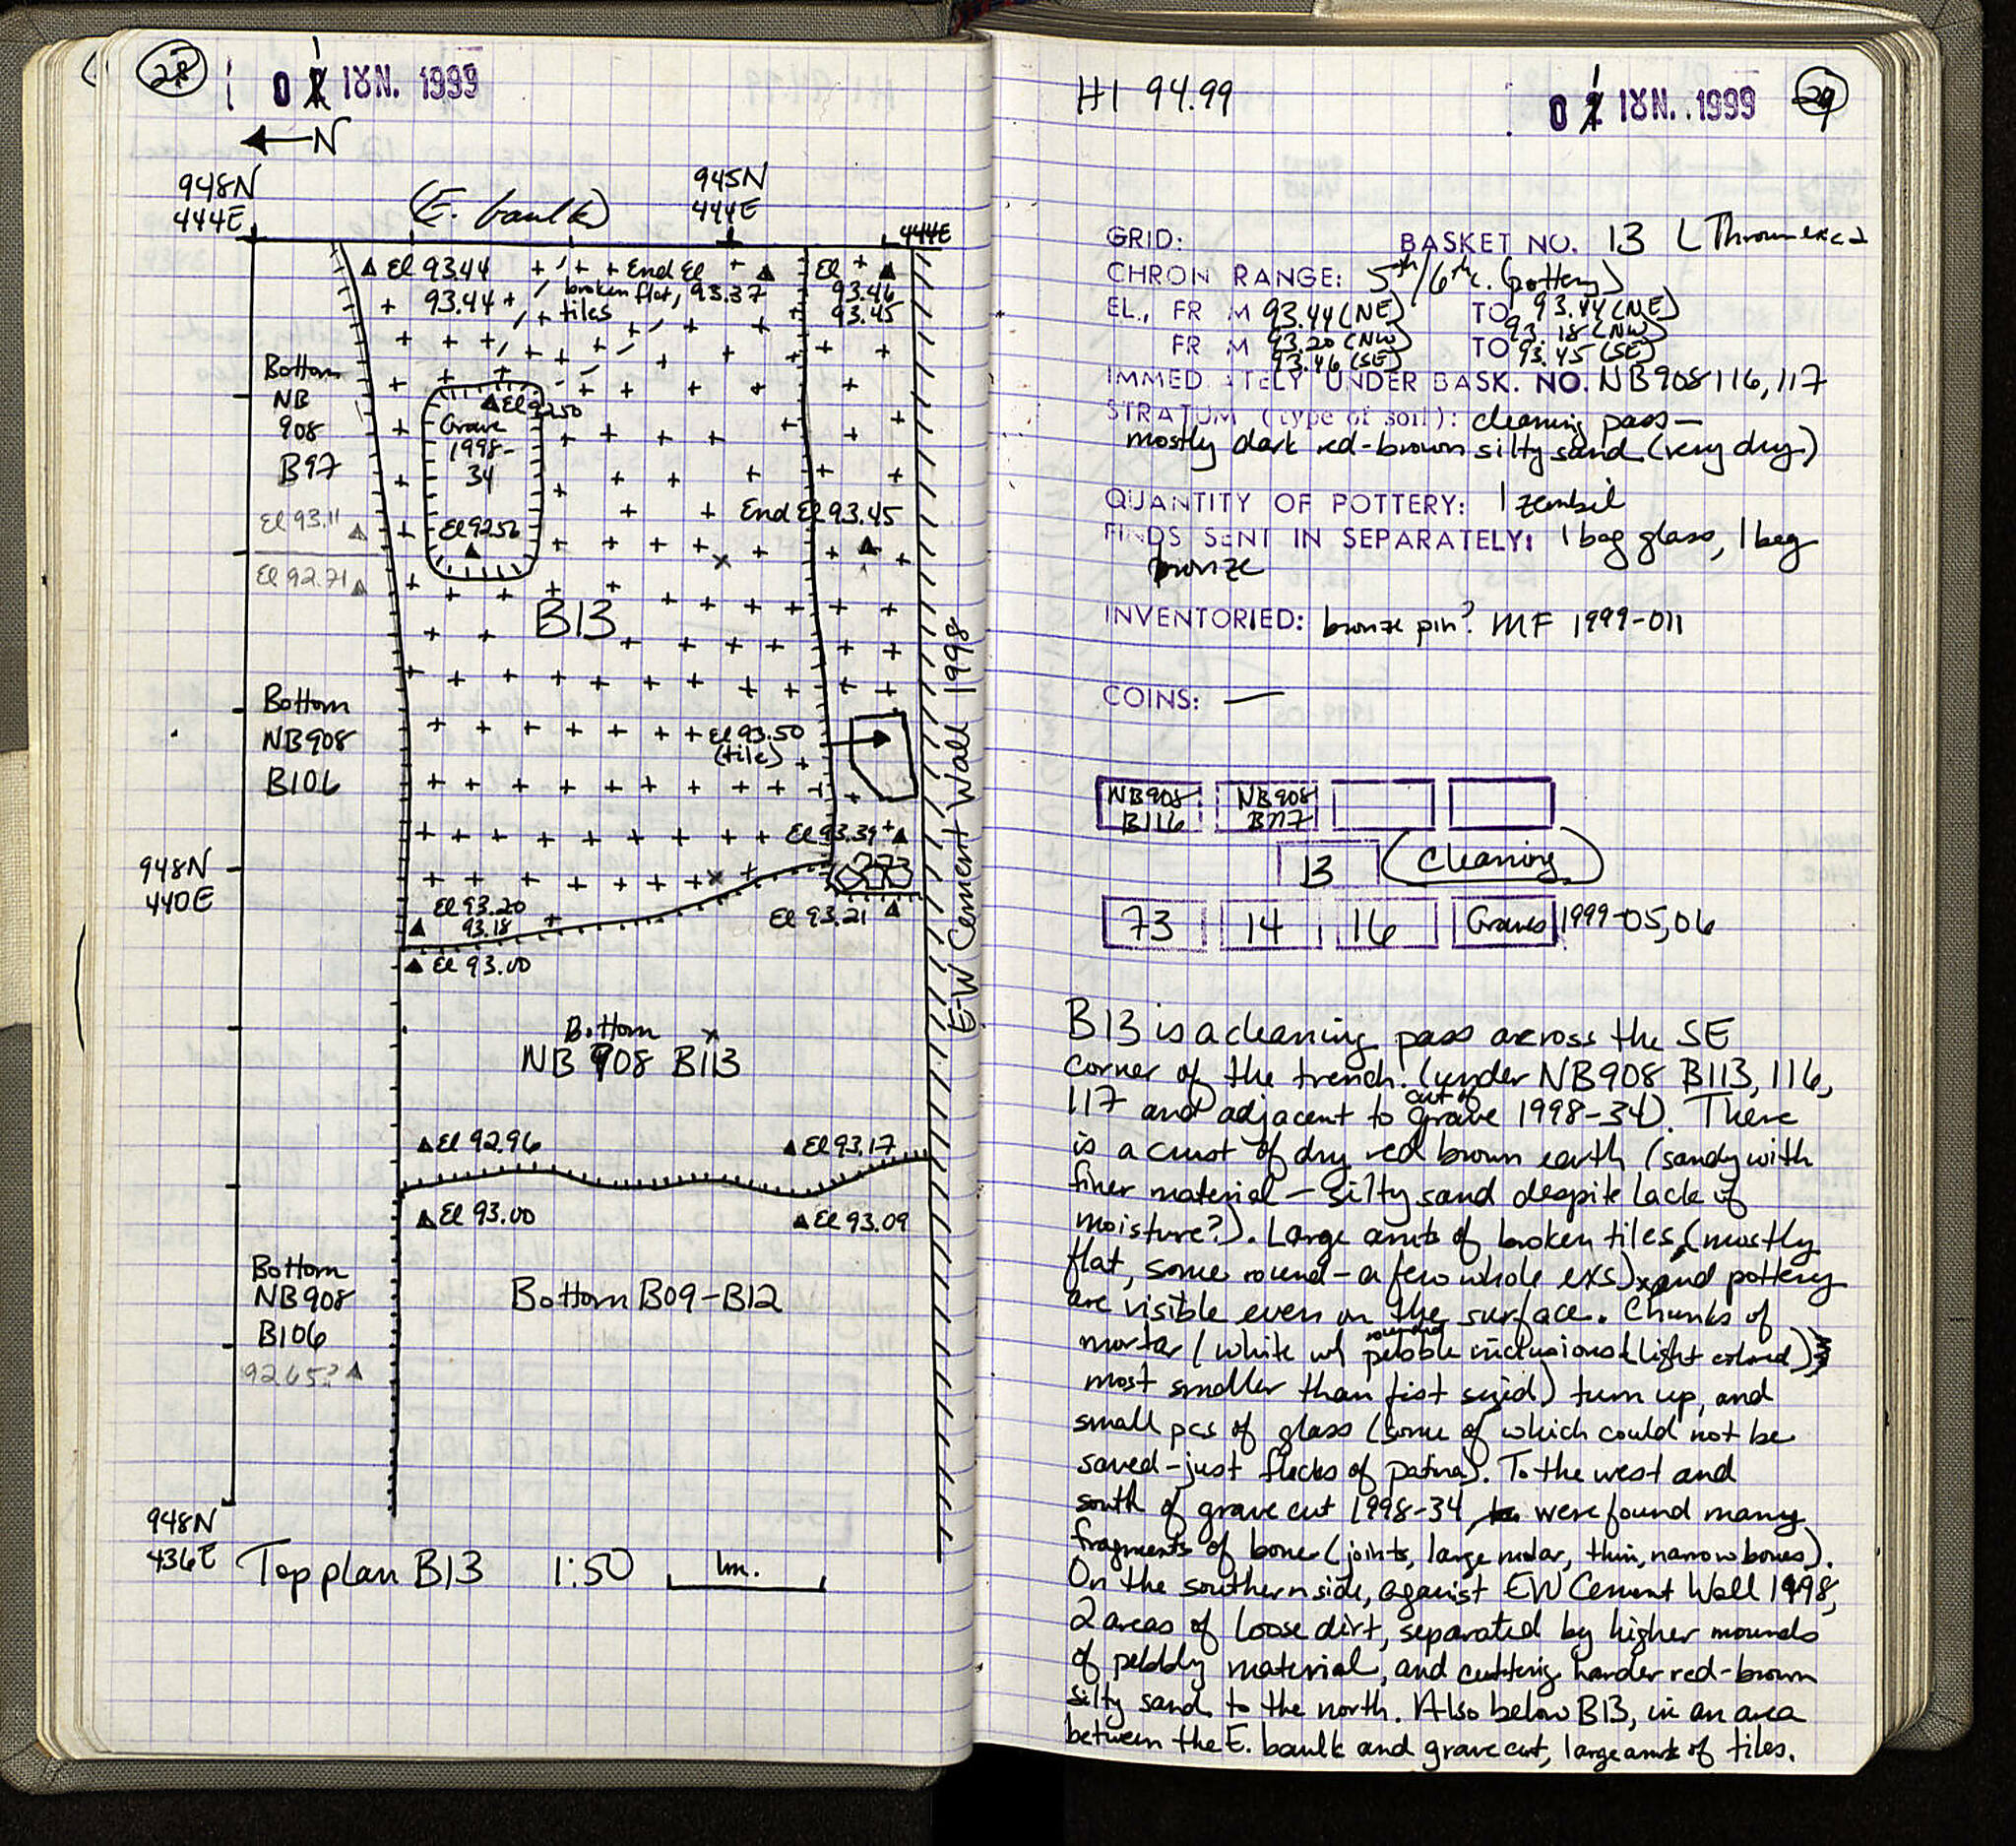 28
01 ΙΟΥΝ. 1999
N
948N
444E
(E. baulk)
945N
444E
444E
El 93.44
93.44
End El
93.37
broken flat,
tiles
El
93.46
93.45
Bottom
NB
908
B97
El 92.50
Grave
1998-
34
El 92.56
El 93.11
El 92.71
End El 93.45
B13
Bottom
NB908
B106
El 93.50
(tile)
E-W Cement Wall 1998
El 93.39
948N
440E
El 93.20
93.18
El 93.21
El 93.00
Bottom
NB 908 B113
El 92.96
El 93.17
El 93.00
El 93.09
Bottom
NB908
B106
92.65?
Bottom B09-B12
948N
436E
Top plan B13 1:50 1m.
H1 94.99
01 ΙΟΥΝ. 1999
29
GRID: BASKET NO. 13
CHRON RANGE: 5th/6th c. (pottery)
EL., FR M 93.44 (NE) TO 93.44 (NE)
93.18 (NW)
FR M 93.20 (NW) TO 93.45 (SE)
93.46 (SE)
IMMED ATELY UNDER BASK. NO. NB908 116, 117
STRATUM (type of soil): cleaning pass –
mostly dark red-brown silty sand (very dry)
QUANTITY OF POTTERY: 1 zembil
FINDS SENT IN SEPARATELY: 1 bag glass, 1 bag
bronze
INVENTORIED: bronze pin? MF 1999-011
COINS: —
NB908 B116 NB908 B117
13 (Cleaning)
73 14 16 Graves 1999-05,06
B13 is a cleaning pass across the SE
corner of the trench. (under NB908 B113, 116,
117 and adjacent to cut of grave 1998-34). There
is a crust of dry red brown earth (sandy with
finer material – silty sand despite lack of
moisture?). Large amts of broken tiles, (mostly
flat, some round – a few whole exs) and pottery
are visible even on the surface. Chunks of
mortar (white w/ rounded pebble inclusions (light colored)
most smaller than fist sized) turn up, and
small pcs of glass (some of which could not be
saved – just flecks of patina). To the west and
south of grave cut 1998-34 were found many
fragments of bone (joints, large molar, thin, narrow bones).
On the southern side, against EW Cement Wall 1998,
2 areas of loose dirt, separated by higher mounds
of pebbly material, and cutting harder red-brown
silty sand to the north. Also below B13, in an area
between the E. baulk and grave cut, large amts of tiles.